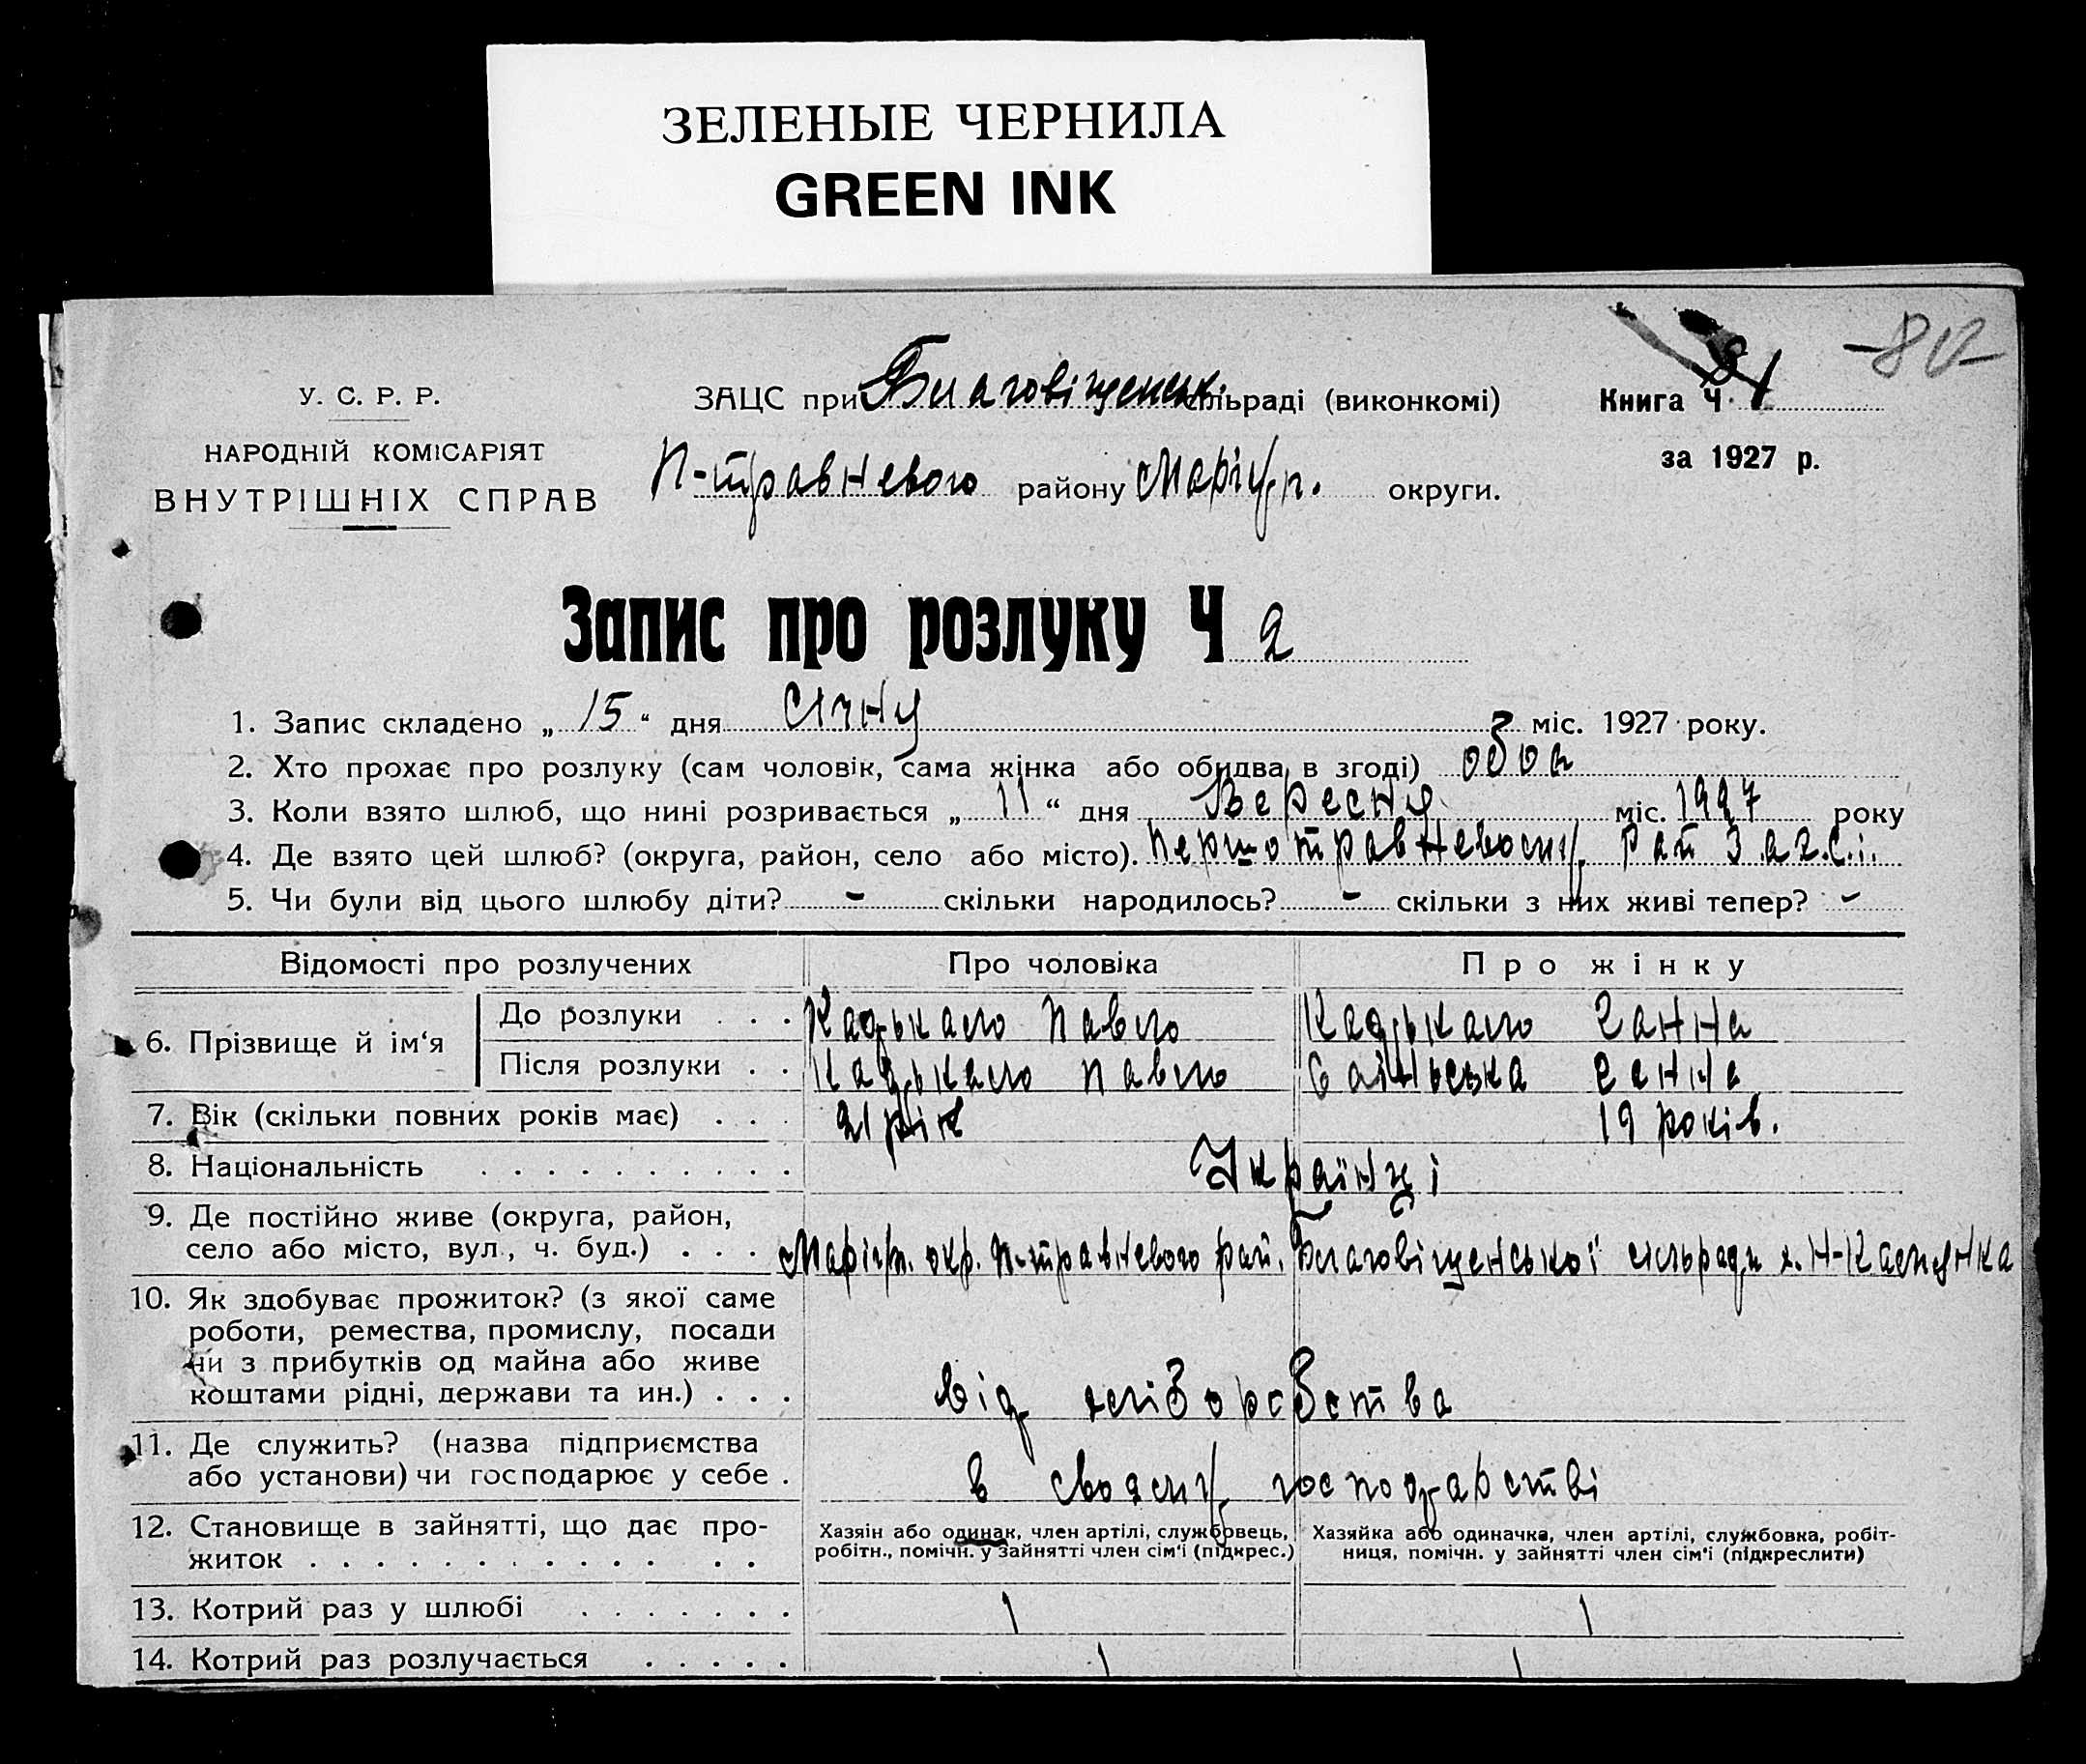 ЗЕЛЕНЫЕ ЧЕРНИЛА
GREEN INK
-80-
У. С. Р. Р.
НАРОДНІЙ КОМІСАРІЯТ
ВНУТРІШНІХ СПРАВ
ЗАЦС при Благовіщенськ сільраді (виконкомі)
П-травневого району Маріуп. округи.
Книга Ч.
за 1927 р.
Запис про розлуку Ч 2
1. Запис складено „ 15 “ дня січня міс. 1927 року.
2. Хто прохає про розлуку (сам чоловік, сама жінка або обидва в згоді) обоє
3. Коли взято шлюб, що нині розривається „ 11 “ дня Вересня міс. 1927 року
4. Де взято цей шлюб? (округа, район, село або місто). Першотравневому Рай З.а.г.с.і.
5. Чи були від цього шлюбу діти? - скільки народилось? - скільки з них живі тепер? -
Відомості про розлучених Про чоловіка Про жінку
6. Прізвище й ім'я До розлуки . . . Кадькало Павло Кадькало Ганна
Після розлуки . . Кадькало Павло Ганна
7. Вік (скільки повних років має) . . . 21 рік 19 років.
8. Національність . . . . . . . . . . Українці
9. Де постійно живе (округа, район,
село або місто, вул., ч. буд.) . . . Маріуп. окр. П-травневого рай. Благовіщенської сільради х. Н-Каспянка
10. Як здобуває прожиток? (з якої саме
роботи, ремества, промислу, посади
чи з прибутків од майна або живе
коштами рідні, держави та ин.) . . . від хліборобства
11. Де служить? (назва підприємства
або установи) чи господарює у себе . в своєму господарстві
12. Становище в зайнятті, що дає про-
житок . . . . . . . . . . .
Хазяїн або одинак, член артілі, службовець,
робітн., помічн. у зайнятті член сім'ї (підкрес.)
Хазяйка або одиначка, член артілі, службовка, робіт-
ниця, помічн. у зайнятті член сім'ї (підкреслити)
13. Котрий раз у шлюбі . . . . . . . 1 1
14. Котрий раз розлучається . . . . . 1 1